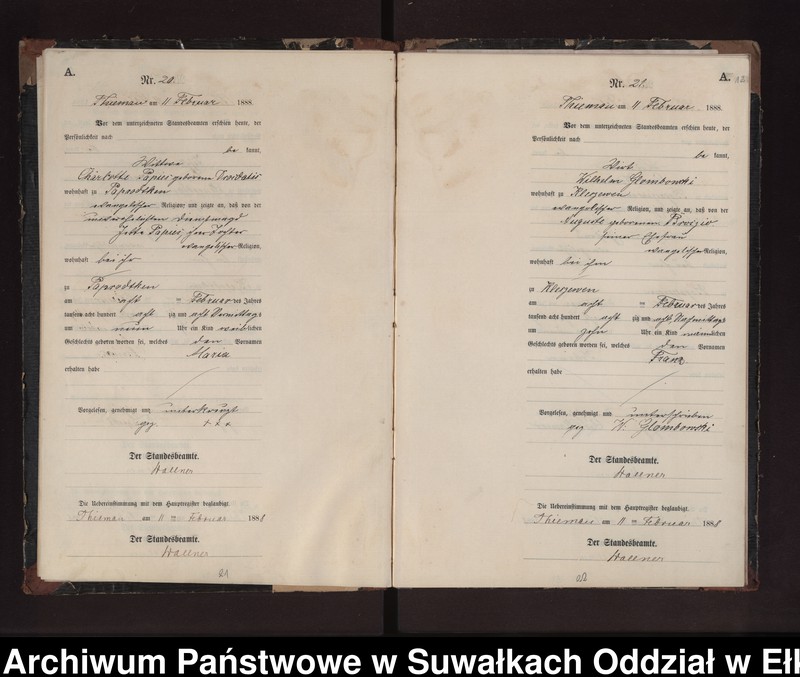 A.
Nr. 20.
Thiemau am 11 Februar 1888.
Vor dem unterzeichneten Standesbeamten erschien heute, der
Persönlichkeit nach
be kannt,
Wittwe
Charlotte Papies geborene
wohnhaft zu Paprodtken
evangelischer Religion, und zeigte an, daß von der
unverehelichten Dienstmagd
Papies, ihrer Tochter
evangelischer Religion,
wohnhaft bei ihr
zu Paprodtken
am acht ten Februar des Jahres
tausend acht hundert acht zig und acht Vormittags
um neun Uhr ein Kind weiblichen
Geschlechts geboren worden sei, welches den Vornamen
Maria
erhalten habe
Vorgelesen, genehmigt und unterkreuzt
gez. + + +
Der Standesbeamte.
Wallner
Die Uebereinstimmung mit dem Hauptregister beglaubigt.
Thiemau am 11 ten Februar 1888
Der Standesbeamte.
Wallner
21
A.
Nr. 21.
Thiemau am 11 Februar 1888.
Vor dem unterzeichneten Standesbeamten erschien heute, der
Persönlichkeit nach
be kannt,
Wirt
Wilhelm Glombowski
wohnhaft zu Kleszewen
evangelischer Religion, und zeigte an, daß von der
Auguste geborenen
seiner Ehefrau
evangelischer Religion,
wohnhaft bei ihm
zu Kleszewen
am acht ten Februar des Jahres
tausend acht hundert acht zig und acht Nachmittags
um zehn Uhr ein Kind männlichen
Geschlechts geboren worden sei, welches den Vornamen
Franz
erhalten habe
Vorgelesen, genehmigt und unterschrieben
gez. W. Glombowski
Der Standesbeamte.
Wallner
Die Uebereinstimmung mit dem Hauptregister beglaubigt.
Thiemau am 11 ten Februar 1888
Der Standesbeamte.
Wallner
Archiwum Państwowe w Suwałkach Oddział w Ełk